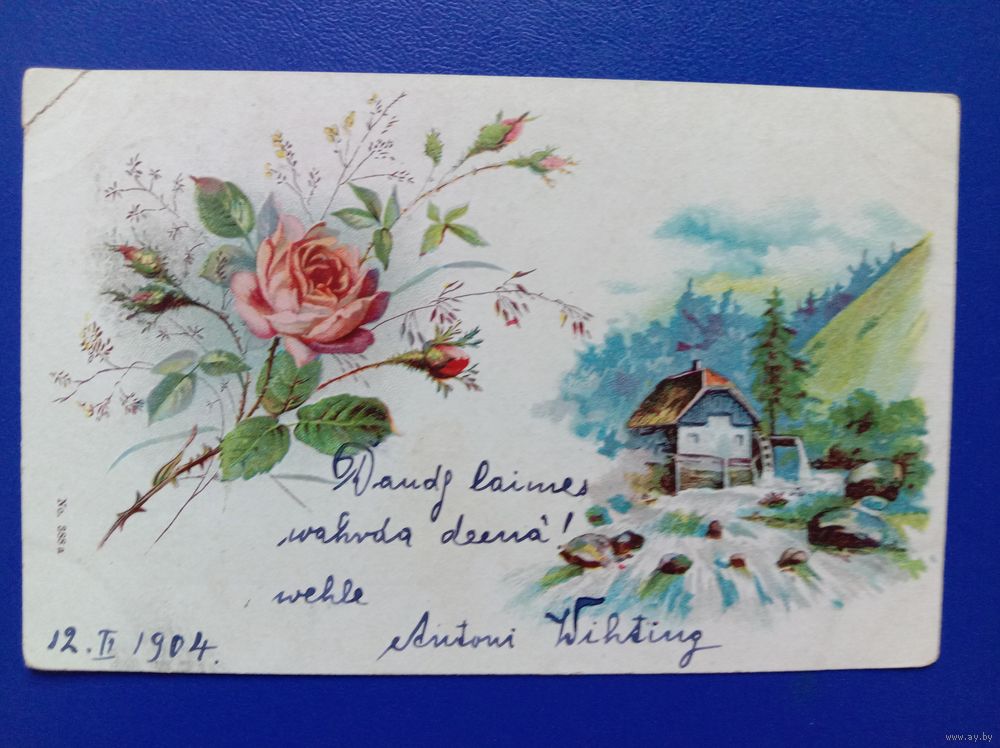 Daudz laimes
wahrda deenâ!
wehle
12. II 1904.
Antoni Wihting
No. 388 a
www.ay.by